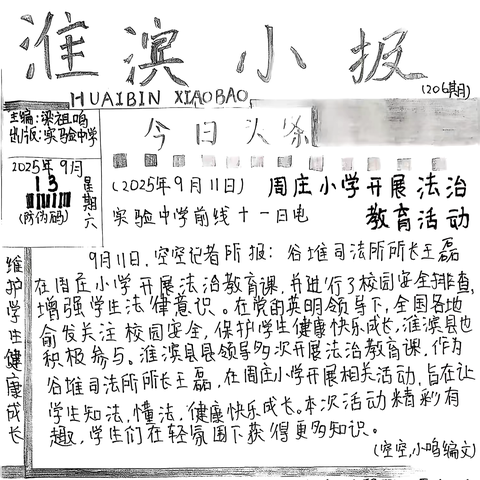 淮滨小报
HUAIBIN XIAOBAO
(206期)
主编:梁祖鸣
出版:实验中学
今日头条
2025年9月
13
(防伪码)
星期六
(2025年9月11日)
实验中学前线十一日电
周庄小学开展法治
教育活动
维护学生健康成长
9月11日,空空记者所报:谷堆司法所所长王磊
在周庄小学开展法治教育课,并进行了校园安全排查,
增强学生法律意识。在党的英明领导下,全国各地
俞发关注校园安全,保护学生健康快乐成长,淮滨县也
积极参与。淮滨县县领导多次开展法治教育课,作为
谷堆司法所所长王磊,在周庄小学开展相关活动,旨在让
学生知法,懂法,健康快乐成长。本次活动精彩有
趣,学生们在轻氛围下获得更多知识。
(空空,小鸣编文)